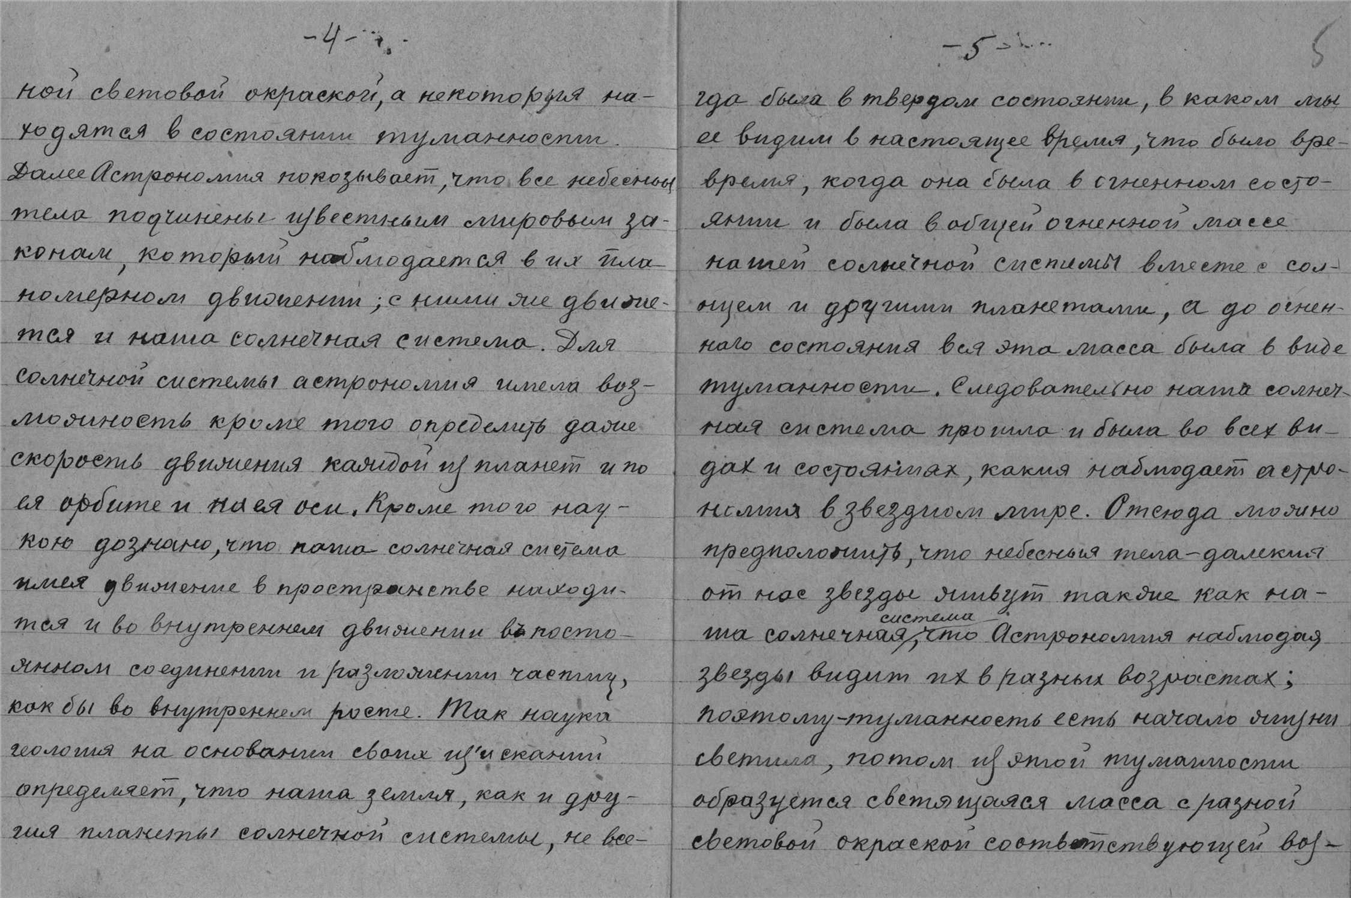 -4-
ной световой окраской, а некоторыя на-
ходятся в состоянии туманности.
Далее Астрономия показывает, что все небесныя
тела подчинены известным мировым за-
конам, который наблюдается в их пла
номерном движении; с ними же движе-
тся и наша солнечная система. Для
солнечной системы астрономия имела воз-
можность кроме того определить даже
скорость движения каждой из планет и по
ея орбите и на ея оси. Кроме того нау-
кою дознано, что наша солнечная система
имея движение в пространстве находи-
тся и во внутреннем движении въ посто-
янном соединении и разложении частиц,
как бы во внутреннем росте. Так наука
геология на основании своих из'исканий
определяет, что наша земля, как и дру-
гия планеты солнечной системы, не все-
-5-
5
гда была в твердом состоянии, в каком мы
ее видим в настоящее время, что было вре-
время, когда она была в огненном состо-
янии и была в общей огненной массе
нашей солнечной системы вместе с сол-
нцем и другими планетами, а до огнен-
наго состояния вся эта масса была в виде
туманности. Следовательно наша солнеч-
ная система прошла и была во всех ви-
дах и состояниях, какия наблюдает астро-
номия в звездном мире. Отсюда можно
предположить, что небесныя тела-далекия
от нас звезды живут также как на-
система
ша солнечная, что Астрономия наблюдая
звезды видит их в разных возрастах;
поэтому-туманность есть начало жизни
светила, потом из этой туманности
образуется светящаяся масса с разной
световой окраской соответствующей воз-